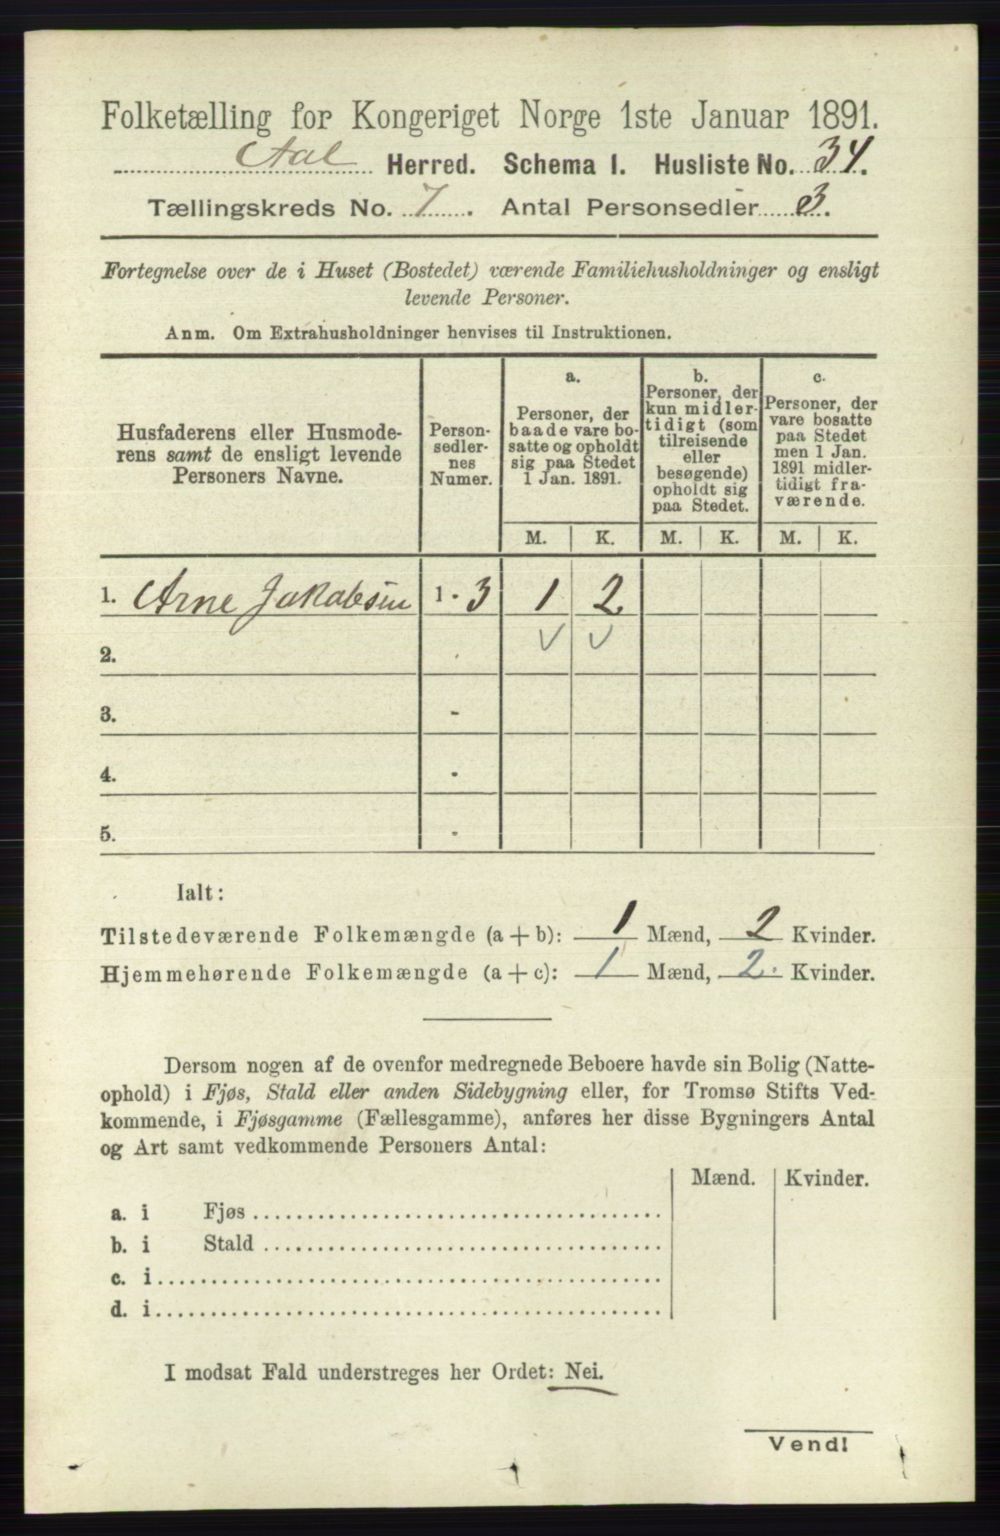 Folketælling for Kongeriget Norge 1ste Januar 1891.
Aal Herred. Schema I. Husliste No. 34.
Tællingskreds No. 7. Antal Personsedler 3.
Fortegnelse over de i Huset (Bostedet) værende Familiehusholdninger og ensligt
levende Personer.
Anm. Om Extrahusholdninger henvises til Instruktionen.
Husfaderens eller Husmode-
rens samt de ensligt levende
Personers Navne.
Person-
sedler-
nes
Numer.
a.
Personer, der
baade vare bo-
satte og opholdt
sig paa Stedet
1 Jan. 1891.
b.
Personer, der
kun midler-
tidigt (som
tilreisende
eller
besøgende)
opholdt sig
paa Stedet.
c.
Personer, der
vare bosatte
paa Stedet
men 1 Jan.
1891 midler-
tidigt fra-
værende.
M. K. M. K. M. K.
1. Arne Jakobsen 1 - 3 1 2
2.
3. -
4. -
5. -
Ialt:
Tilstedeværende Folkemængde (a + b): 1 Mænd, 2 Kvinder.
Hjemmehørende Folkemængde (a + c): 1 Mænd, 2. Kvinder.
Dersom nogen af de ovenfor medregnede Beboere havde sin Bolig (Natte-
ophold) i Fjøs, Stald eller anden Sidebygning eller, for Tromsø Stifts Ved-
kommende, i Fjøsgamme (Fællesgamme), anføres her disse Bygningers Antal
og Art samt vedkommende Personers Antal:
Mænd. Kvinder.
a. i Fjøs
b. i Stald
c. i
d. i
I modsat Fald understreges her Ordet: Nei.
Vend!